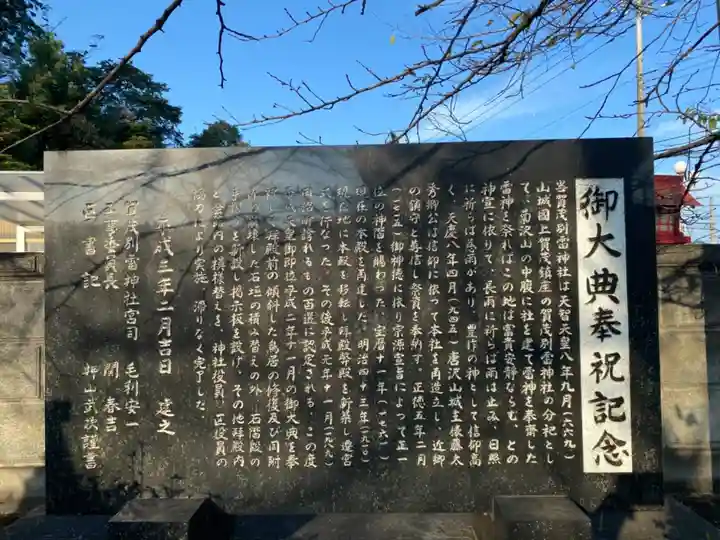 御大典奉祝記念
当賀茂別雷神社は天智天皇八年九月(六六九)
山城國上賀茂鎮座の賀茂別雷神社の分祀とし
て、菊沢山の中腹に社を建て雷神を奉斎した
雷神を祭ればこの地は富貴安静ならむ、との
神宣に依りて、長雨に祈らば雨は止み、日照
に祈らば慈雨があり、豊作の神として信仰高
く、天慶八年四月(九四五)唐沢山城主俵藤太
秀郷公は信仰に依って本社を再造立し、近郷
の鎮守と尊信し祭資を奉納す、正徳五年二月
(一七一五)御神徳に依り宗源宣旨によって正一
位の神階を賜わった、宝暦十一年(一七六一)
現在の本殿を再建した、明治四十三年(一九一〇)
現在地に本殿を移転し拝殿幣殿を新築し遷宮
式を行なった、その後平成元年十一月(一九八九)
この度
天皇御即位平成二年十一月の御大典を奉
拝殿前の傾斜した鳥居の修復及び同附
した石垣の積み替えの外、石階段の
を新設し掲示板を設け、その他拝殿内
と金具の模様替えを、神社役員、区役員の
協力により実施、滞りなく完了した、
平成三年二月吉日 建之
賀茂別雷神社宮司 毛利安一
工事委員長 関春吉
区書記 柳山武次謹書